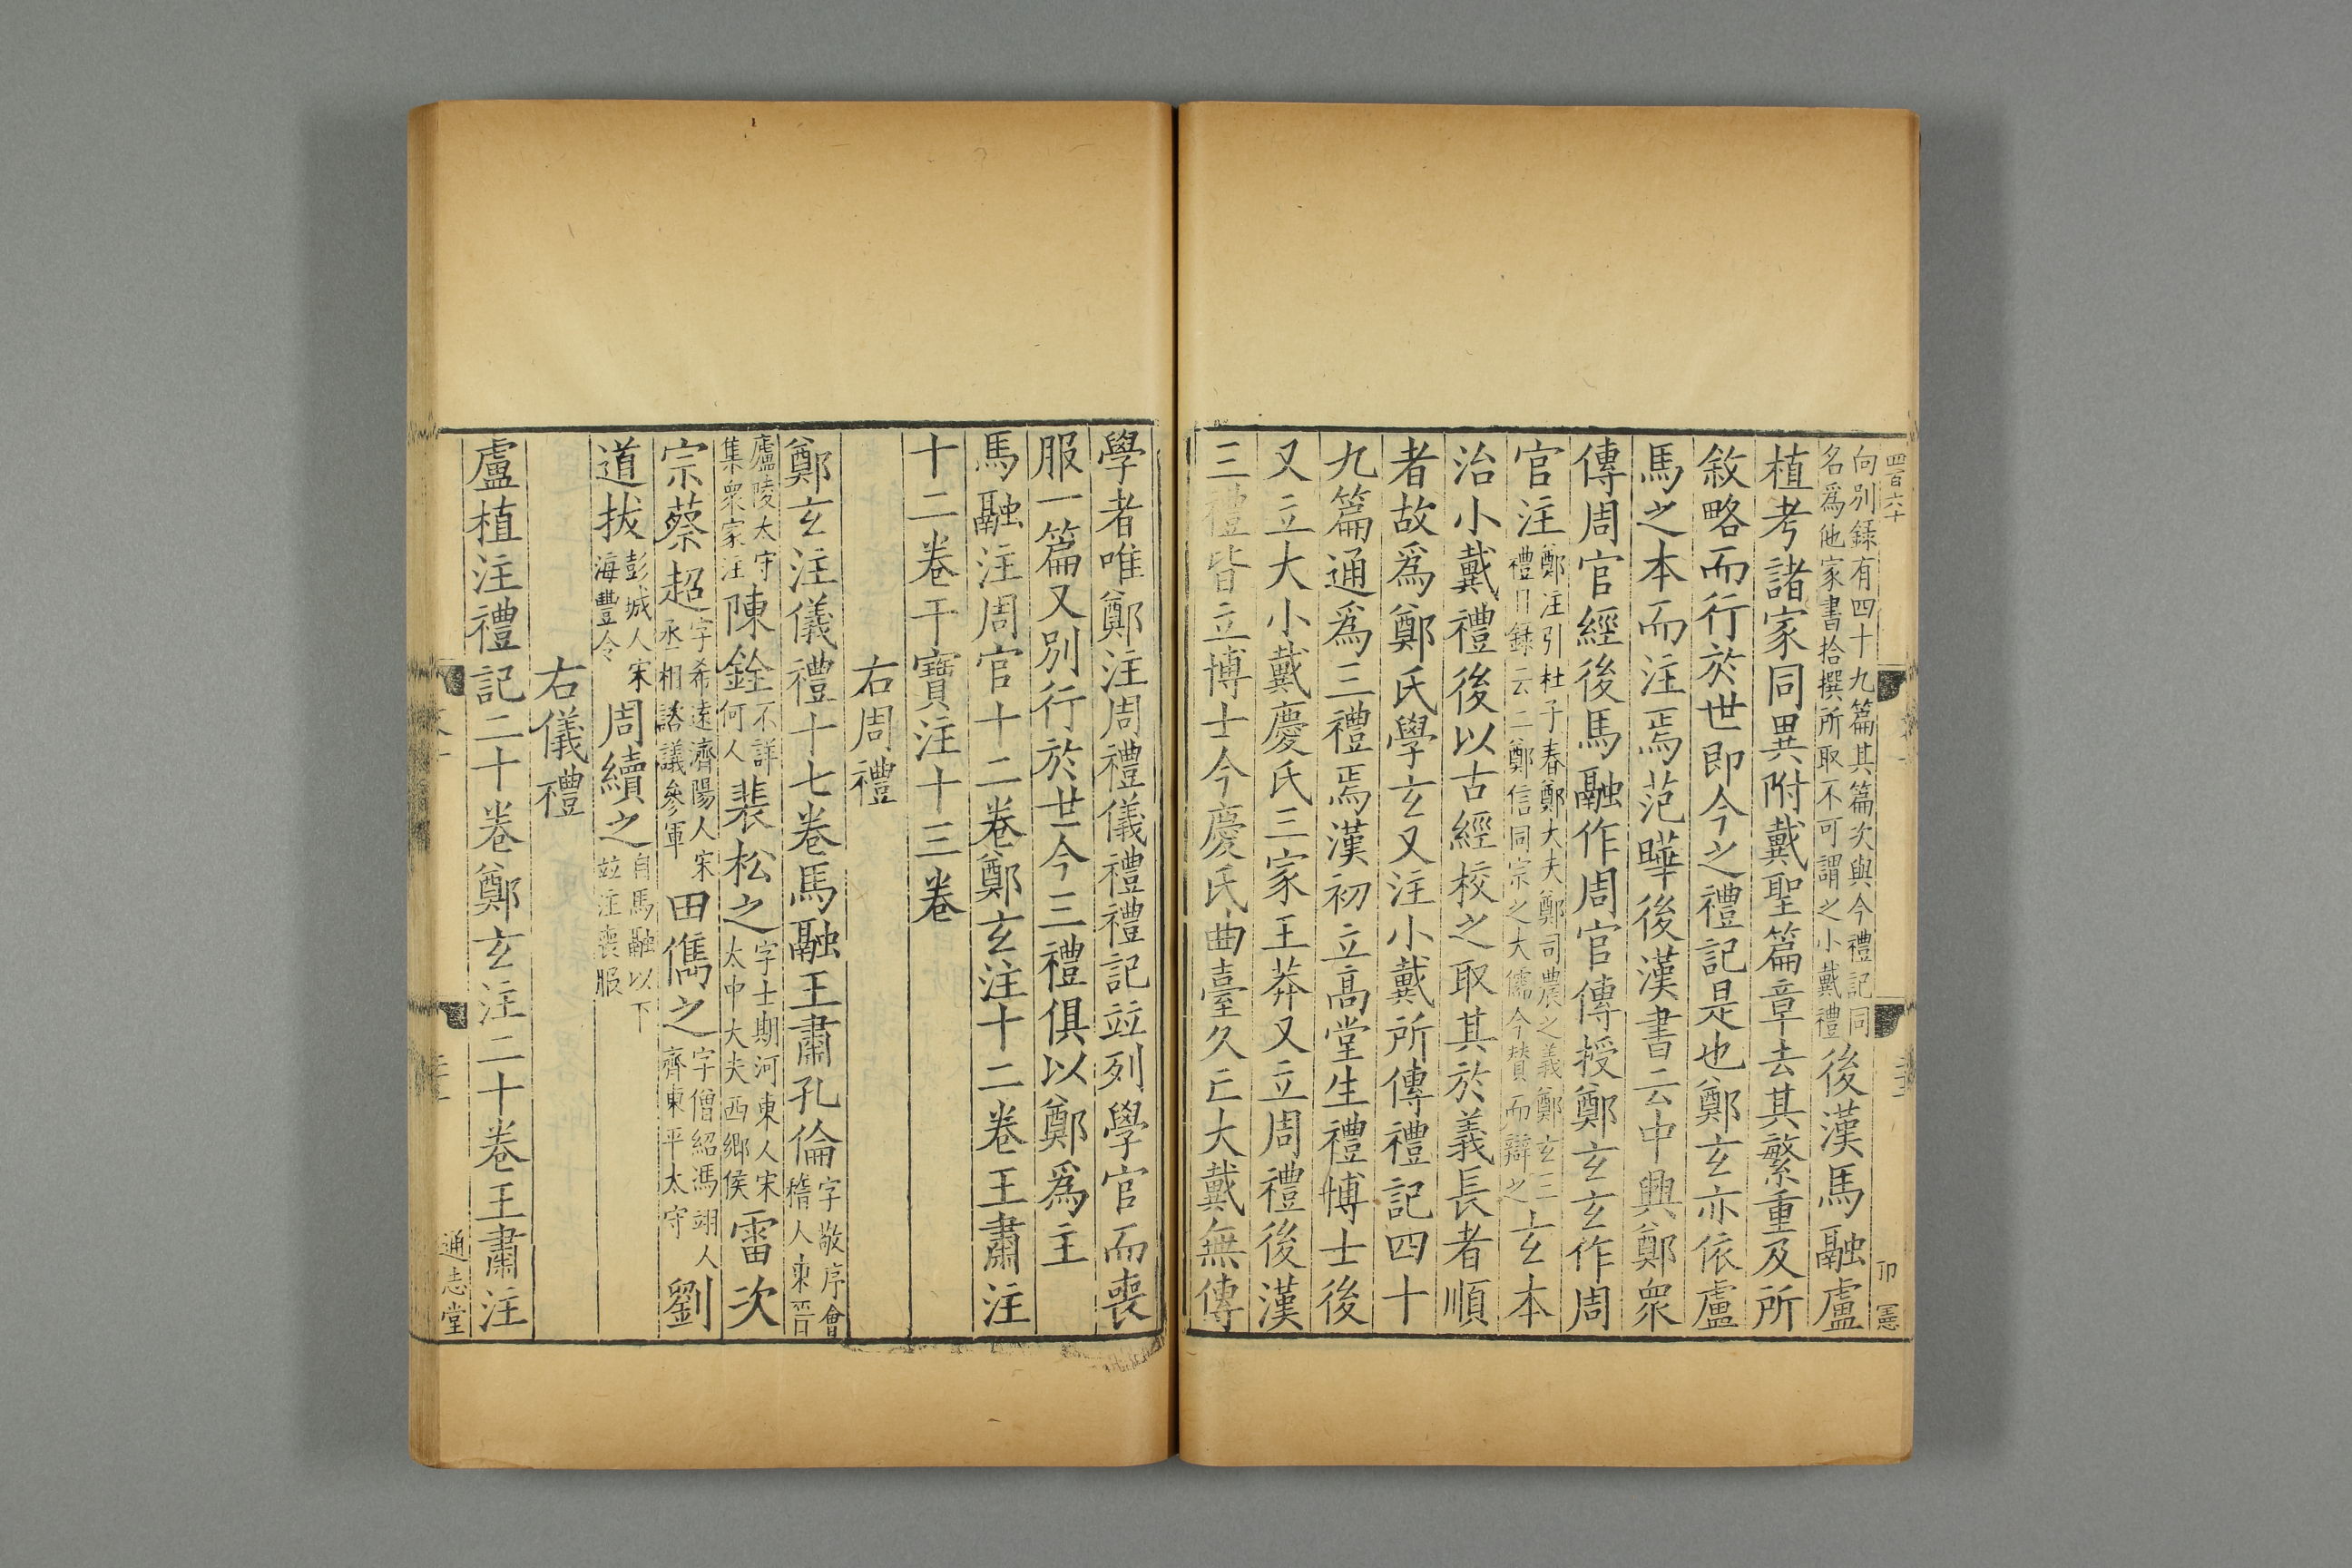 四百六十
卬 寭
向別録有四十九篇其篇次與今禮記同
名爲他家書拾撰所取不可謂之小戴禮
後漢馬融盧
植考諸家同異附戴聖篇章去其繁重及所
敘略而行於世即今之禮記是也鄭玄亦依盧
馬之本而注焉范曄後漢書云中興鄭衆
傳周官經後馬融作周官傳授鄭玄玄作周
官注
鄭注引杜子春鄭大夫鄭司農之義鄭玄三
禮目録云二鄭信同宗之大儒今賛而辯之
玄本
治小戴禮後以古經校之取其於義長者順
者故爲鄭氏學玄又注小戴所傳禮記四十
九篇通爲三禮焉漢初立高堂生禮博士後
又立大小戴慶氏三家王莽又立周禮後漢
三禮皆立博士今慶氏曲臺久亡大戴無傳
學者唯鄭注周禮儀禮禮記竝列學官而喪
服一篇又別行於世今三禮俱以鄭爲主
馬融注周官十二卷鄭玄注十二卷王肅注
十二卷干寶注十三卷
右周禮
鄭玄注儀禮十七卷馬融王肅孔倫
字敬序會
稽人東晉
廬陵太守
集衆家注
陳銓
不詳
何人
裴松之
字士期河東人宋
太中大夫西鄉侯
雷次
宗蔡超
字希遠濟陽人宋
丞相諮議參軍
田儁之
字僧紹馮翊人
齊東平太守
劉
道拔
彭城人宋
海豐令
周續之
自馬融以下
竝注喪服
右儀禮
盧植注禮記二十卷鄭玄注二十卷王肅注
通志堂